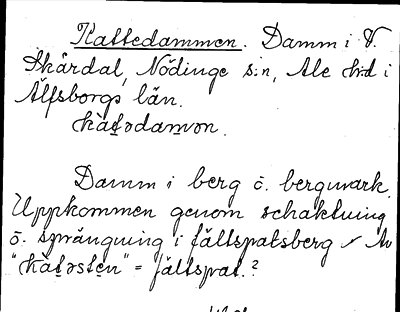 Kattedammen. Damm i V.
Skårdal, Nödinge s:n, Ale hd i
Älfsborgs län.
kàt̯ədam̯ən.
Damm i berg o. bergmark.
Uppkommen genom schaktning
o. sprängning i fältspatsberg. Av
"kàt̯əste̯n" = fältspat.?